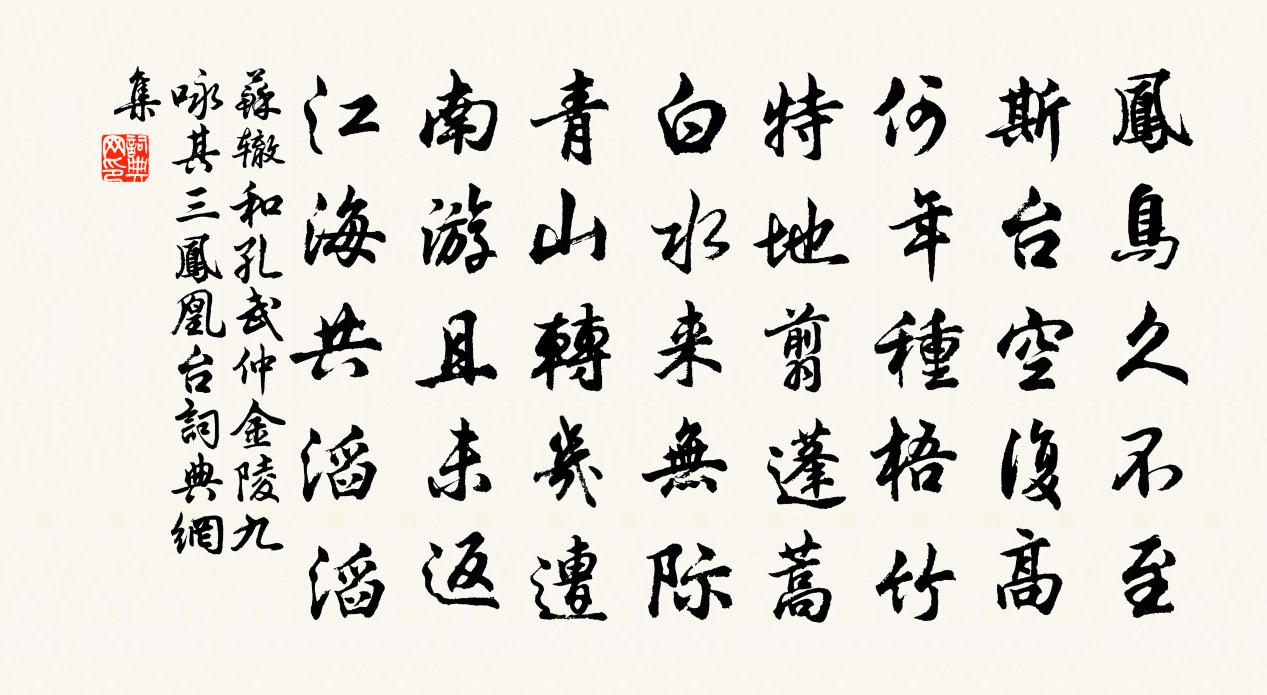 鳳鳥久不至
斯台空復高
何年種梧竹
特地翦蓬蒿
白水来無际
青山轉幾遭
南游且未返
江海共滔滔
蘇辙和孔武仲金陵九
咏其三鳳凰台詞典網
集
詞典
网印